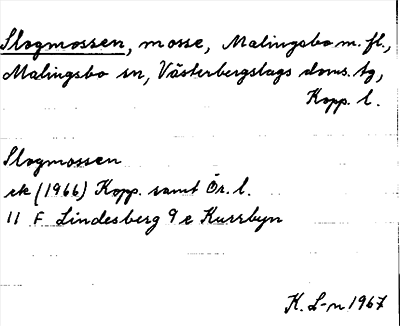 Slogmossen, mosse, Malingsbo m. fl.,
Malingsbo sn, Västerbergslags doms. tg,
Kopp. l.
Slogmossen
ek (1966) Kopp. samt Ör. l.
11 F Lindesberg 9 e Kursbyn
K. L-n 1967